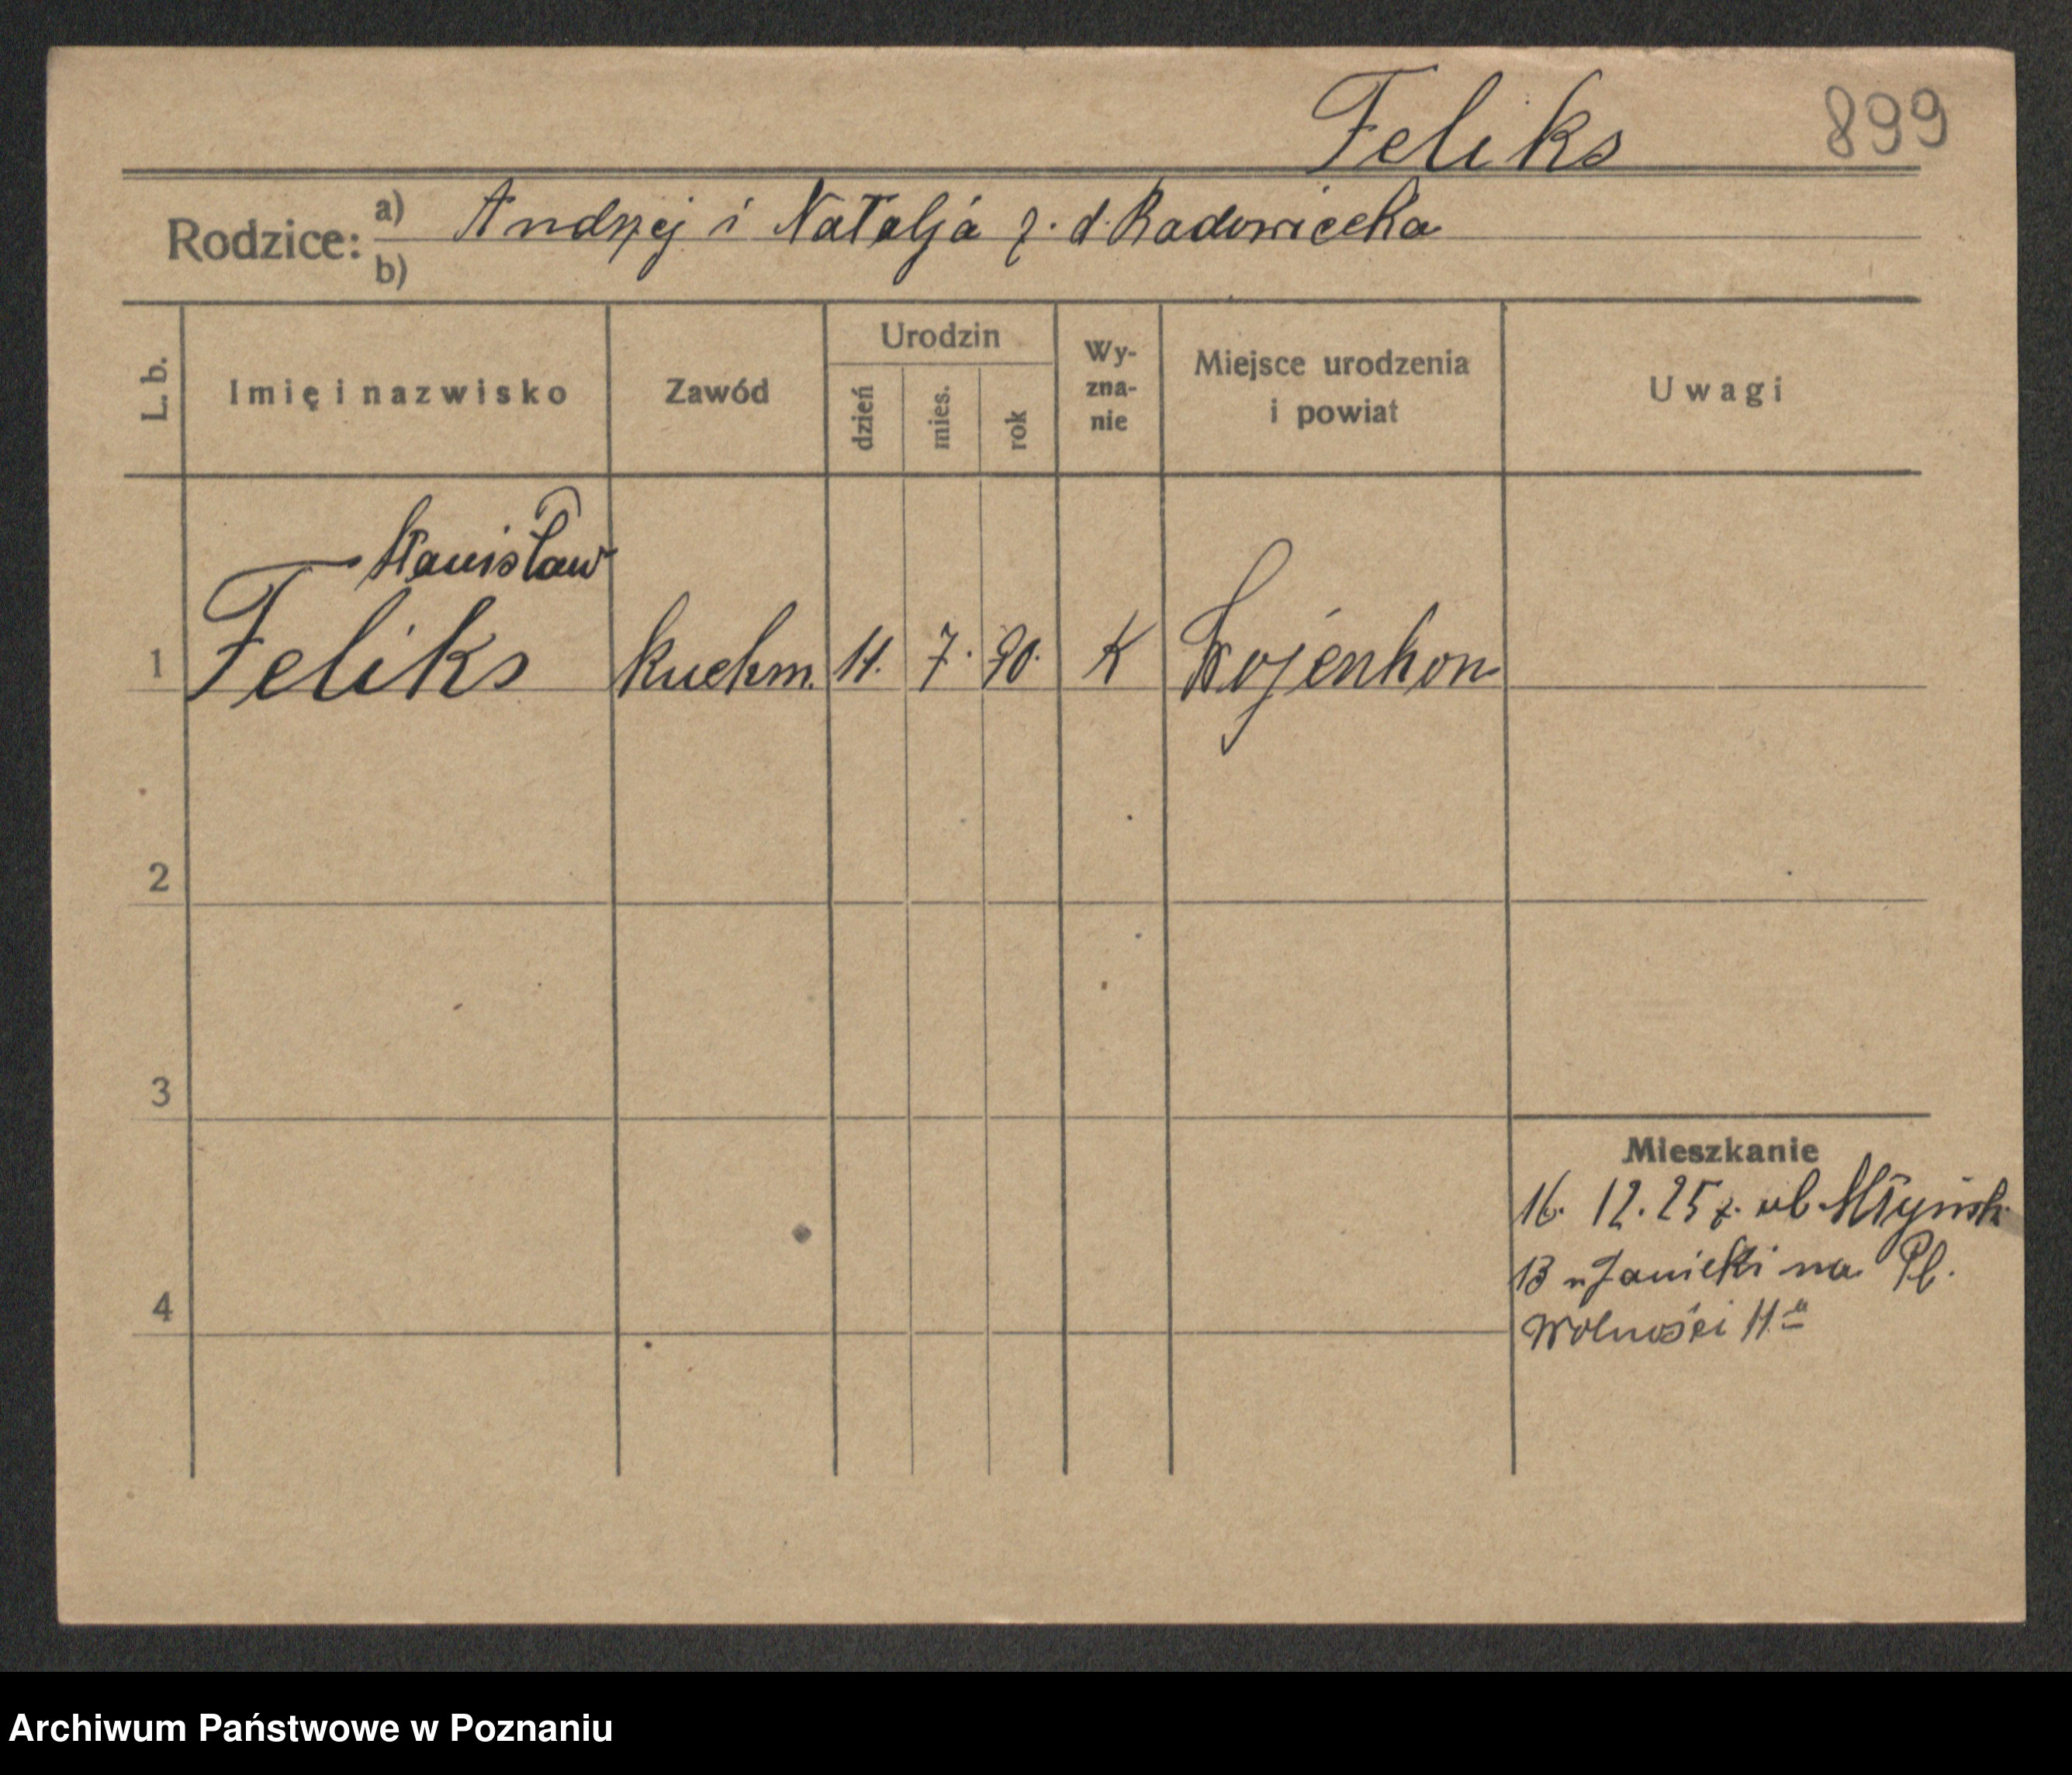 Feliks 899
Rodzice: a) Andrzej i Natalja z. d. Radowiecka
b)
L. b. Imię i nazwisko Zawód Urodzin dzień mies. rok Wy-zna-nie Miejsce urodzenia i powiat Uwagi
Stanisław
1 Feliks kuchm. 11. 7. 90. K
2
3
Mieszkanie
16. 12. 25 z. ul. Młyńsk.
13 u Janicki na Pl.
4
Wolności 11.a
Archiwum Państwowe w Poznaniu